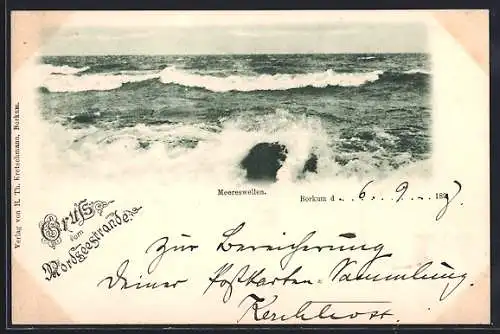 Verlag von H. Th. Kretschmann, Borkum.
Meereswellen.
Borkum d. 6. 9. 1897
Gruss
vom
Nordseestrande.
zur Bereicherung
deiner Postkarten-Sammlung.